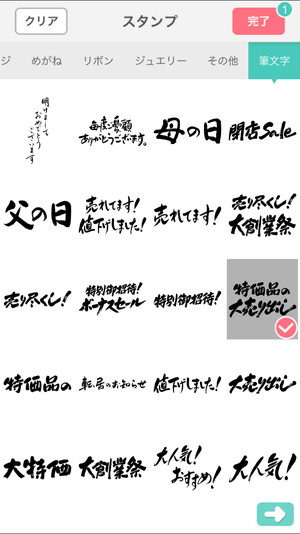 クリア
スタンプ
完了
1
ジ
めがね
リボン
ジュエリー
その他
筆文字
明けまして
おめでとう
ございます
毎度ご愛顧
ありがとうございます。
母の日
閉店Sale
父の日
売れてます!
値下げしました!
売れてます!
売り尽くし!
大創業祭
売り尽くし!
特別御招待!
ボーナスセール
特別御招待!
特価品の
大売り出し
特価品の
転居のお知らせ
値下げしました!
大売り出し
大特価
大創業祭
大人気!
おすすめ!
大人気!